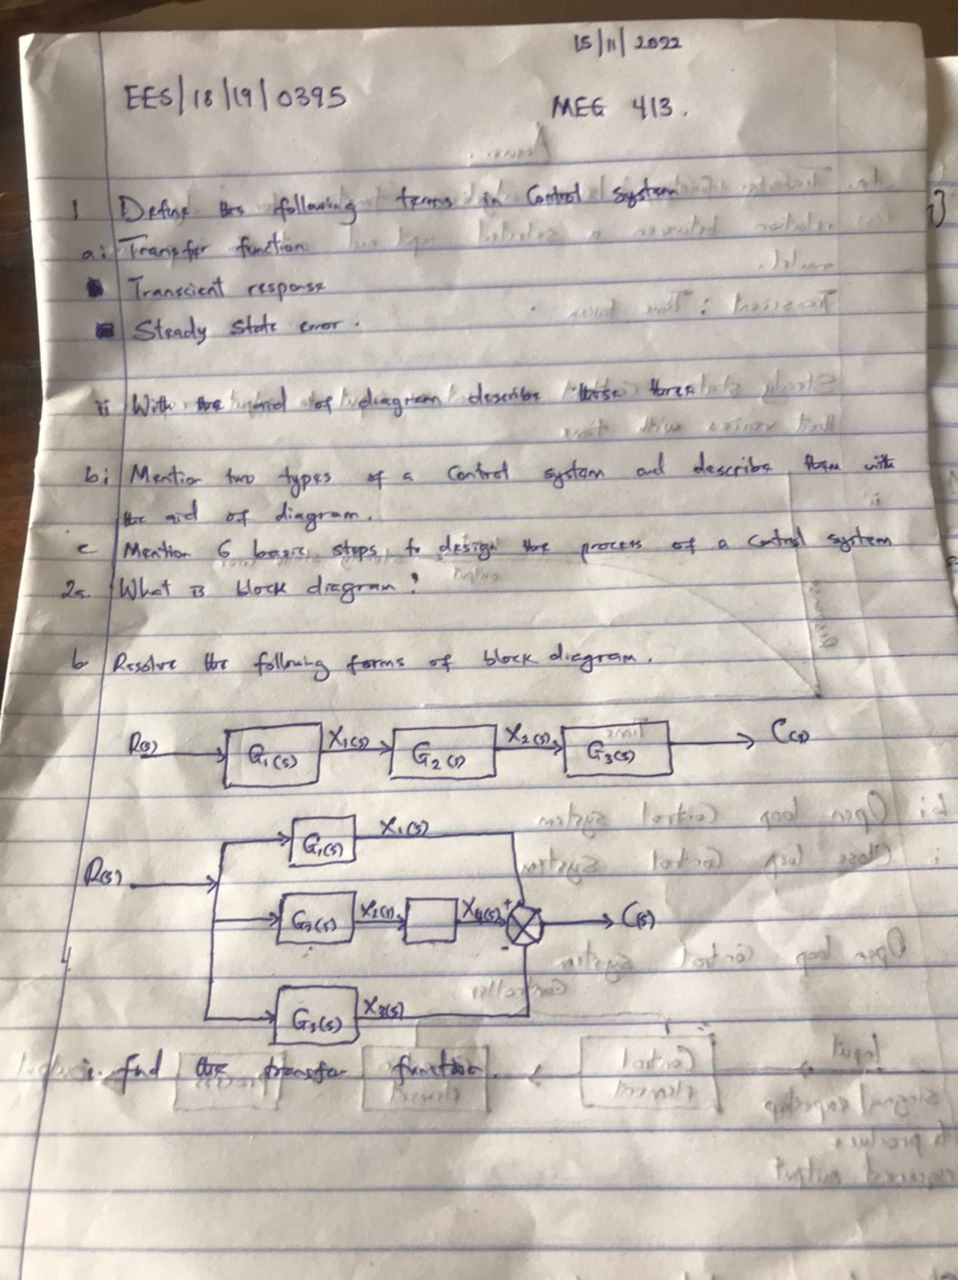 15/11/2022
EES/18/19/0395
MEG 413.
1 Define the following terms in Control System
a i Transfer function
Transcient response
Steady State error.
ii With the aid of diagram describe these three
bi Mention two types of a Control system and describe them with
the aid of diagram.
c Mention 6 basic steps to design the process of a Control system
2a. What is block diagram?
b Resolve the following forms of block diagram.
R(s) G1(s) X1(s) G2(s) X2(s) G3(s) C(s)
G1(s) X1(s)
R(s)
G2(s) X2(s) X4(s) + C(s)
-
G3(s) X3(s)
find the transfer function.